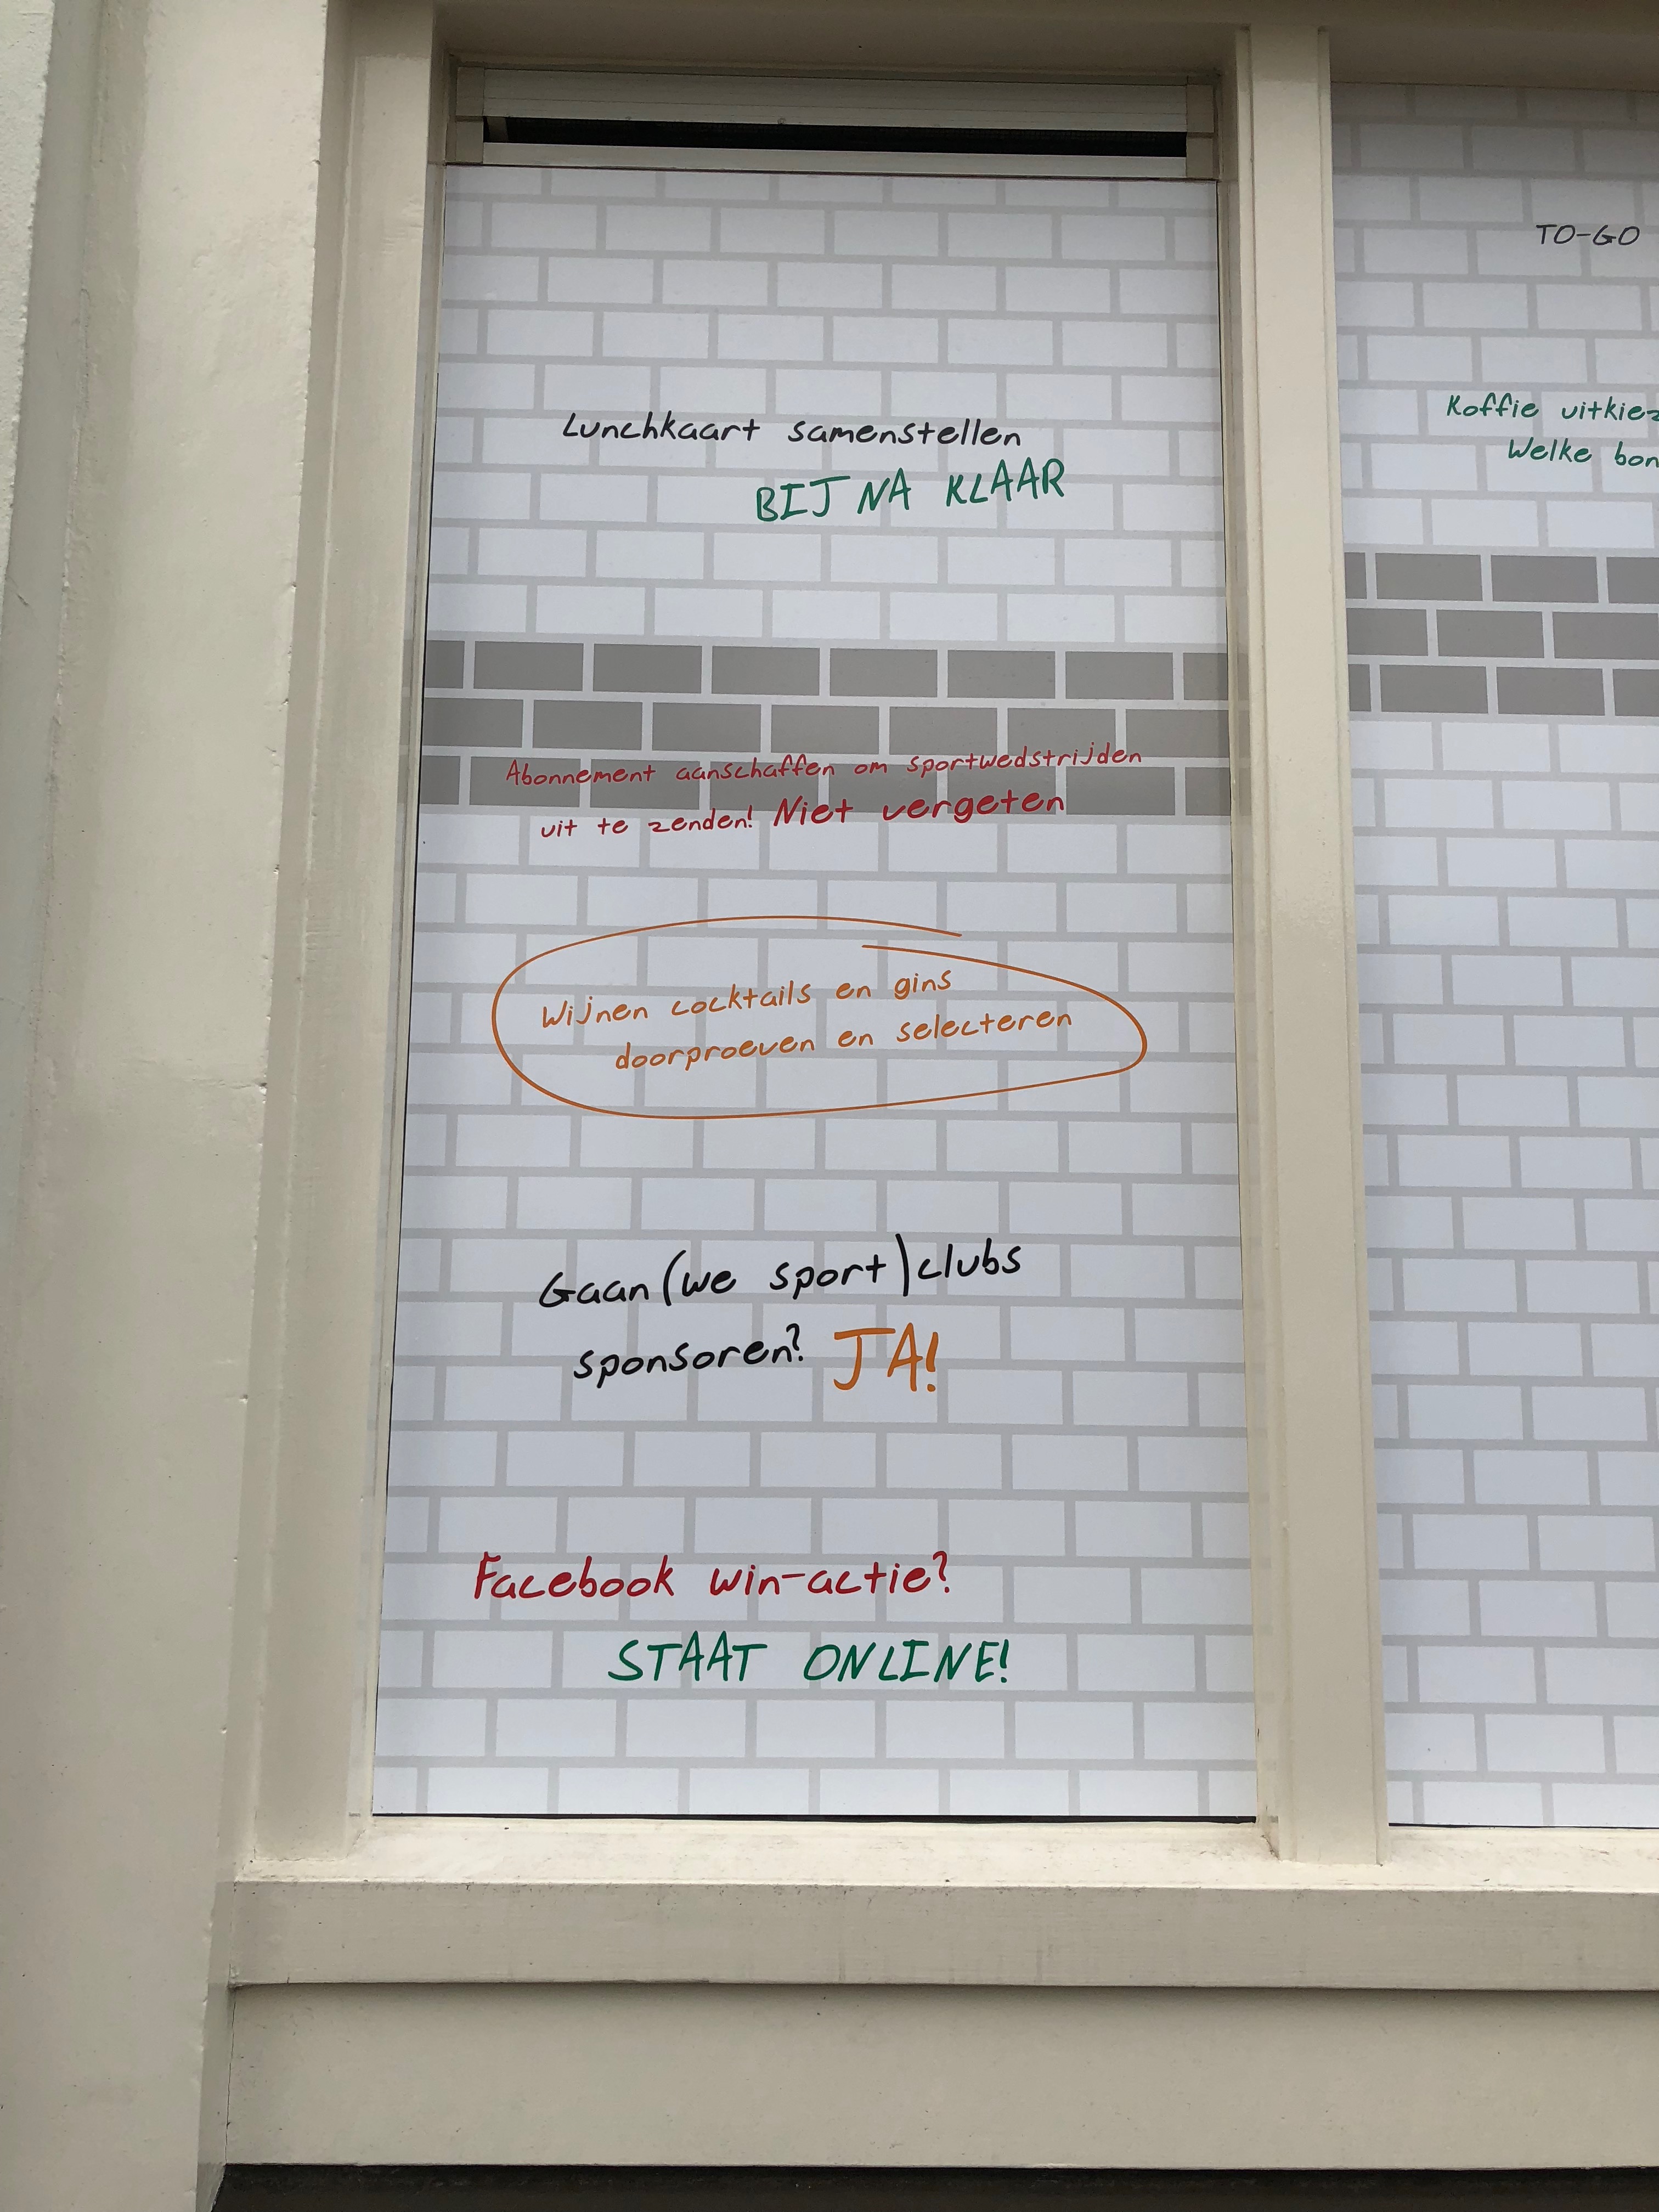 Lunchkaart samenstellen
BIJNA KLAAR
Abonnement aanschaffen om sportwedstrijden
uit te zenden! Niet vergeten
Wijnen cocktails en gins
doorproeven en selecteren
Gaan (we sport) clubs
sponsoren? JA!
Facebook win-actie?
STAAT ONLINE!
TO-GO
Koffie
Welke